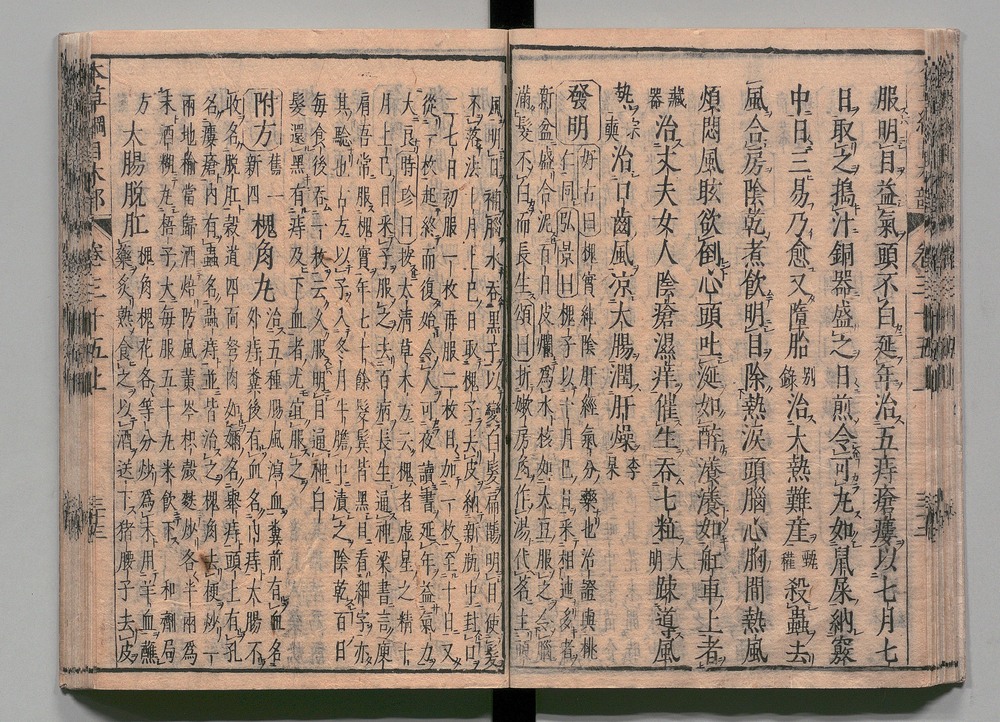 服明目益氣頭不白延年治五痔瘡瘻以七月七
日取之搗汁銅器盛之日煎令可丸如鼠屎納竅
中日三易乃愈又墮胎別錄治大熱難産甄權殺蟲去
風合房陰乾煮飲明目除熱淚頭腦心胸間熱風
煩悶風眩欲倒心頭吐涎如醉瀁瀁如舡車上者
藏器治丈夫女人陰瘡濕痒催生吞七粒大明疎導風
熱宗奭治口齒風凉大腸潤肝燥李杲
發明好古曰槐實純陰肝經氣分藥也治證與桃
仁同弘景曰槐子以十月巳日采相連多者
新盆盛合泥百日皮爛爲水核如大豆服之令腦
滿髮不白而長生頌曰折嫩房角作湯代茗主頭
風明目補腦水吞黑子以變白髮扁鵲明目使髮
不落法十月上巳日取槐子去皮納新瓶中封口
二七日初服一枚再服二枚日加一枚至十日又
從一枚起終而復始令人可夜讀書延年益氣力
大良時珍曰按太清草木方云槐者虛星之精十
月上巳日采子服之去百病長生通神梁書言庾
肩吾常服槐實年七十餘髮鬢皆黑目看細字亦
其驗也古方以子入冬月牛膽中漬之陰乾百日
每食後吞一枚云久服明目通神白
髮還黑有痔及下血者尤宜服之
附方舊一新四槐角丸治五種腸風瀉血糞前有血名
外痔糞後有血名内痔大腸不
收名脫肛穀道四面弩肉如嬭名舉痔頭上有孔
名瘻瘡内有蟲名蟲痔並皆治之槐角去梗炒一
兩地榆當歸酒焙防風黄芩枳殼麩炒各半兩爲
末酒糊丸梧子大每服五十丸米飲下和劑局
方大腸脫肛槐角槐花各等分炒爲末用羊血蘸
藥炙熟食之以酒送下猪腰子去皮